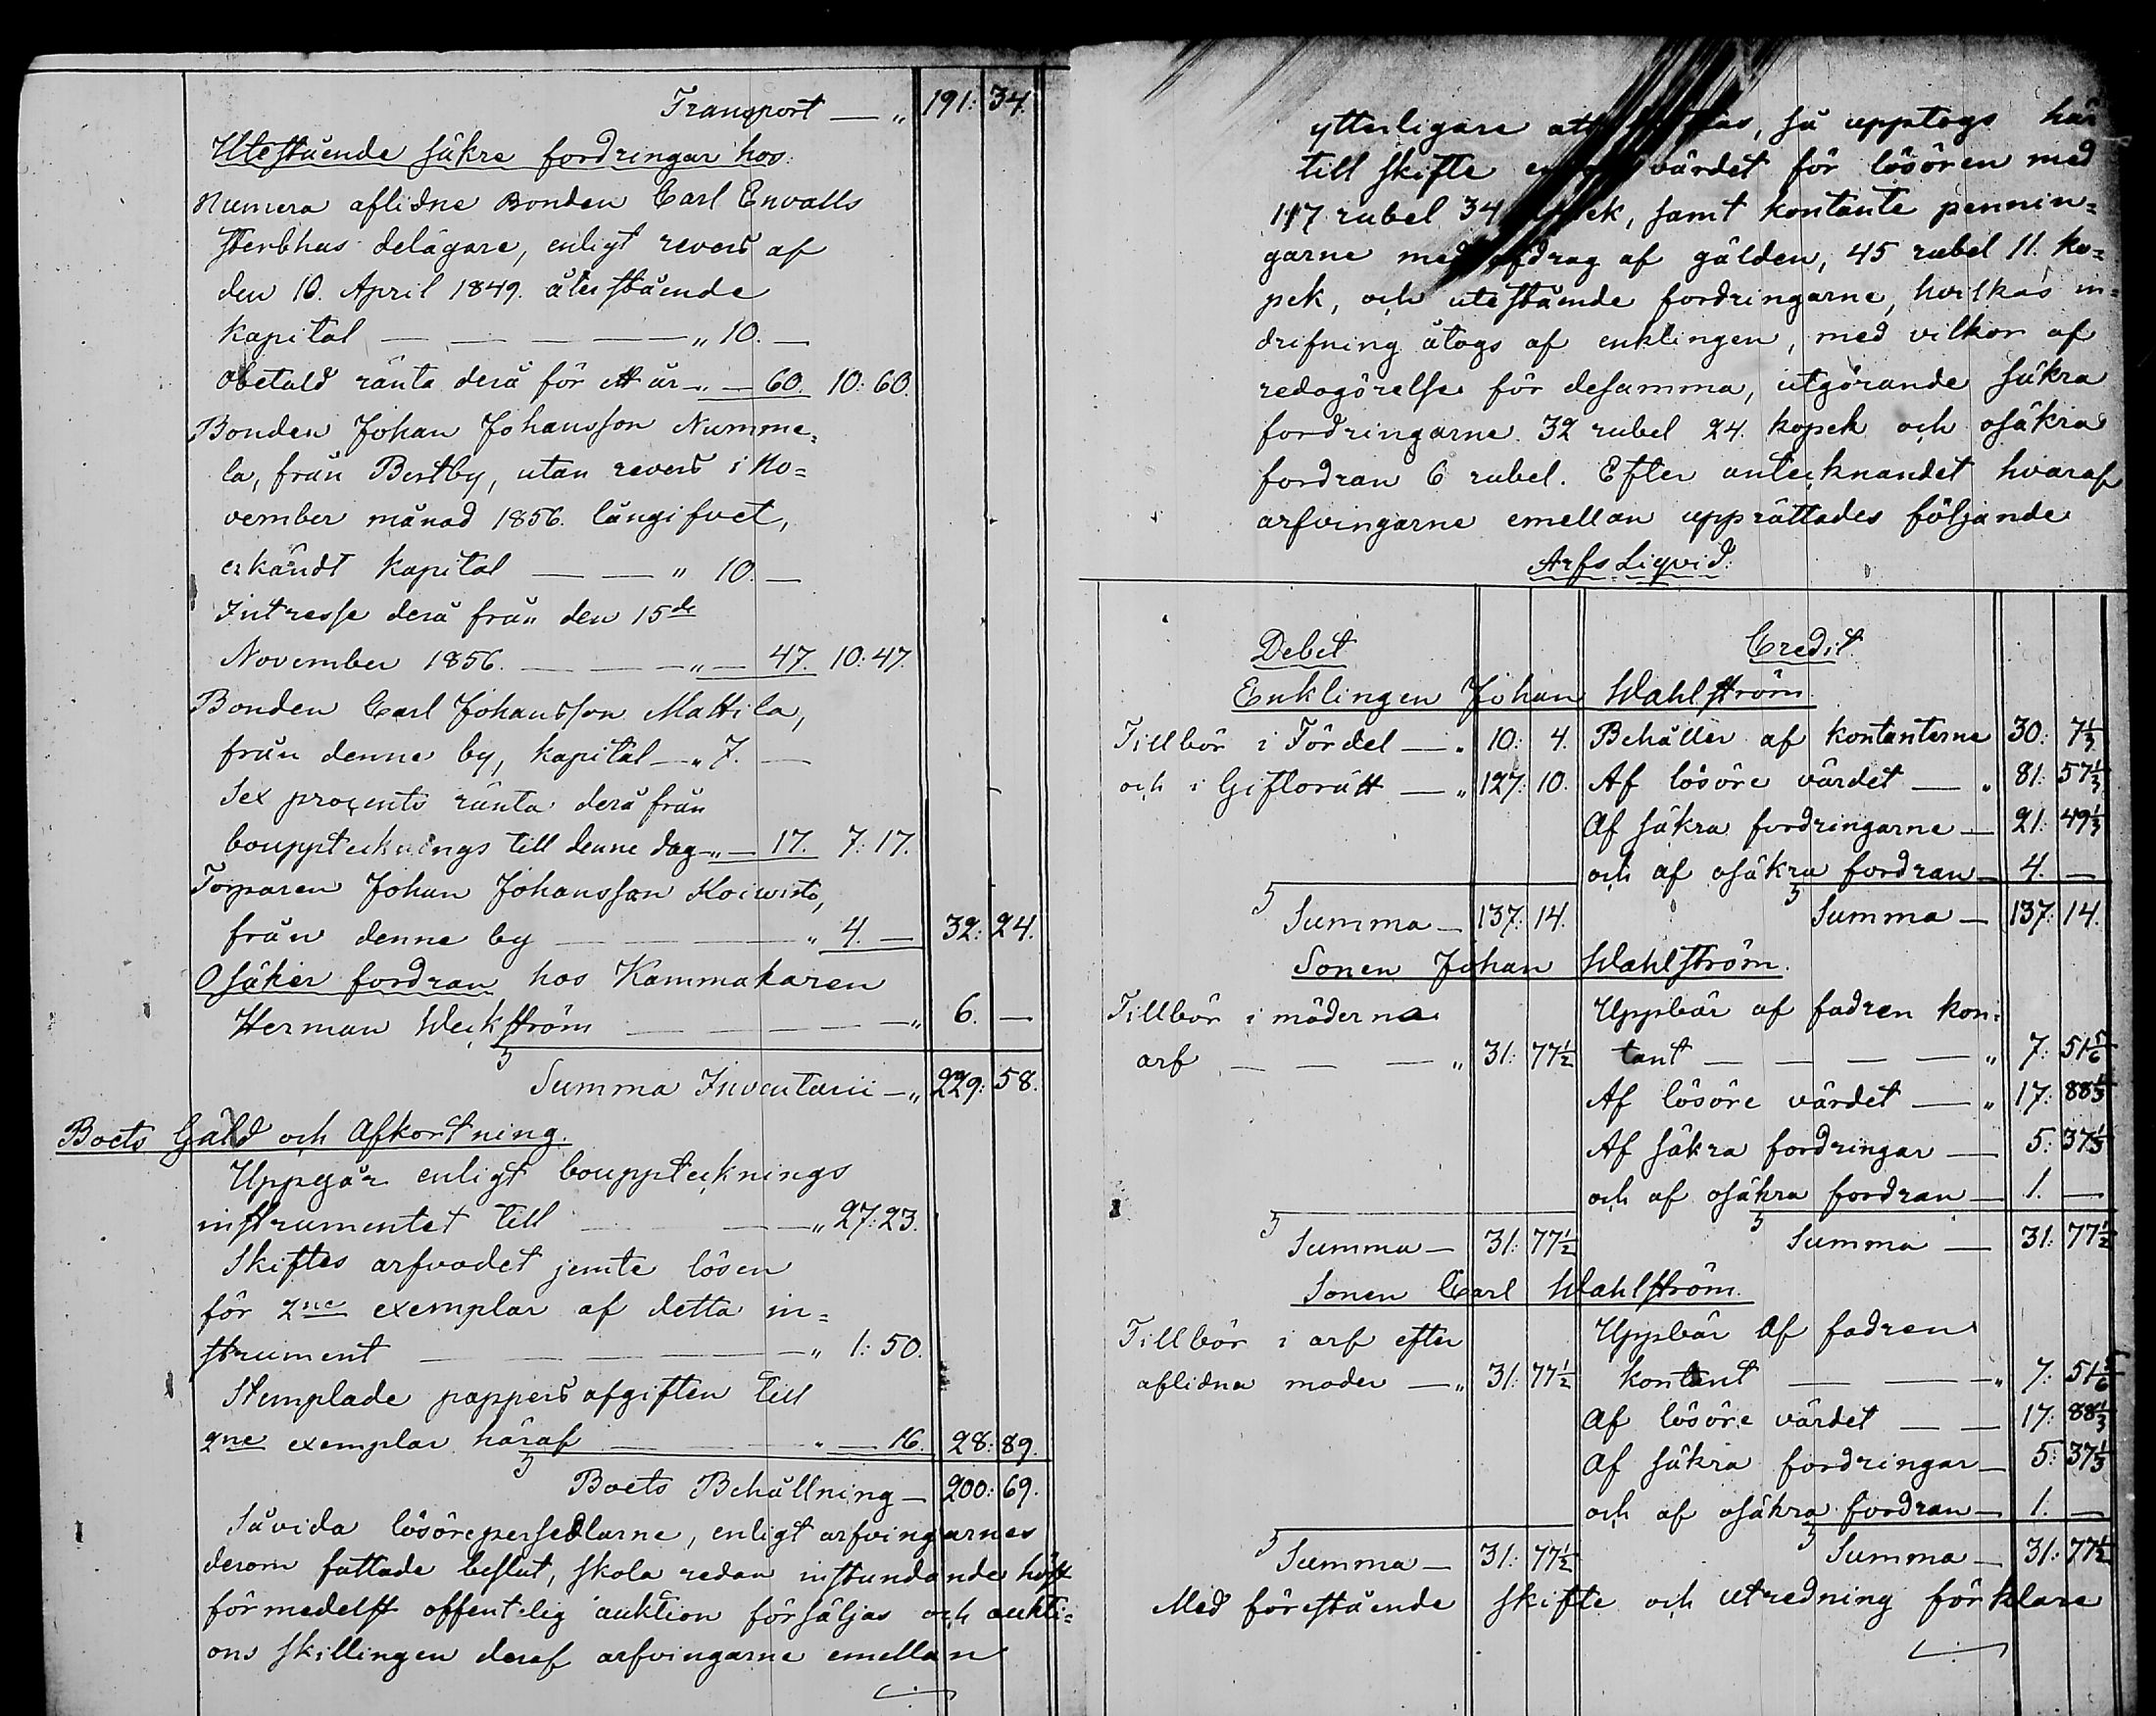 Transport — „ 191: 34.
Utestående säkre fordringar hos:
Numera aflidne Bonden Carl Envalls
sterbhus delägare, enligt revers af
den 10. April 1849. återstående
Kapital — — — — „ 10. —
Obetald ränta derå för ett år „ — 60. 10: 60.
Bonden Johan Johansson Numme=
la, från Bertby, utan revers i No=
vember månad 1856. långifvet,
erkändt Kapital — — „ 10. —
Intresse derå från den 15de
November 1856. — — — „ — 47. 10: 47.
Bonden Carl Johansson Mattila,
från denne by, kapital — „ 7. —
Sex procents ränta derå från
bouppteknings till denne dag „ — 17. 7: 17.
Torparen Johan Johansson Koivisto,
från denne by — — — „ 4. — 32: 24.
Osäker fordran hos Kammakaren
Herman Weckström — — — — „ 6. —
Summa Inventarii — „ 229: 58.
Boets Gäld och Afkortning.
Uppgår enligt bouppteknings
instrumentet till — — — „ 27: 23.
Skiftes arfvodet jemte lösen
för 2ne exemplar af detta in=
strument — — — — „ 1: 50.
Stemplade pappers afgiften till
2ne exemplar häraf — — „ — 16. 28: 89.
Boets Behållning — 200: 69.
Såvida lösörepersedlarne, enligt arfvingarnes
derom fattade beslut, skola redan instundande höst
förmedelst offentelig auktion försäljas och aukti=
ons skillingen deraf arfvingarne emellan
ytterligare att, så upptogs här
till skifte värdet för lösören med
117 rubel 34, samt kontante pennin=
garne med afdrag af gälden, 45 rubel 11. ko=
pek, och utestående fordringarne, hvilkas in=
drifning åtogs af enklingen, med vilkor af
redogörelse för desamma, utgörande säkra
fordringarne 32 rubel 24. kopek och osäkra
fordran 6 rubel. Efter antecknandet hvaraf
arfvingarne emellan upprättades följande
Arfs Liqvid:
Debet Credit
Enklingen Johan Wahlström.
Tillbör i Fördel — „ 10: 4. Behåller af kontanterne 30: 7 1/3
och i Giftorätt — „ 127: 10. Af lösöre värdet — „ 81: 57 1/3
Af säkra fordringarne — 21: 49 1/3
och af osäkra fordran — 4. —
Summa — 137: 14. Summa — 137: 14.
Sonen Johan Wahlström.
Tillbör i möderne Uppbär af fadren kon=
arf — — — „ 31: 77 1/2 tant — — — — „ 7: 51 5/6
Af lösöre värdet — „ 17: 88 1/3
Af säkra fordringar — 5: 37 1/3
och af osäkra fordran — 1. —
Summa — 31: 77 1/2 Summa — 31: 77 1/2
Sonen Carl Wahlström.
Tillbör i arf efter Uppbär af fadren
aflidna moder — „ 31: 77 1/2 kontant — — — „ 7: 51 5/6
Af lösöre värdet — — 17: 88 1/3
Af säkra fordringar — 5: 37 1/3
och af osäkra fordran — 1. —
Summa — 31: 77 1/2 Summa — 31: 77 1/2
Med förestående skifte och utredning förklara